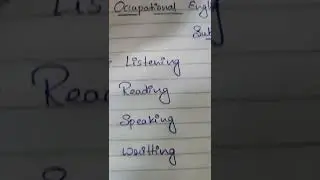 Occupational Engl
Sub
Listening
Reading
Speaking
Writting